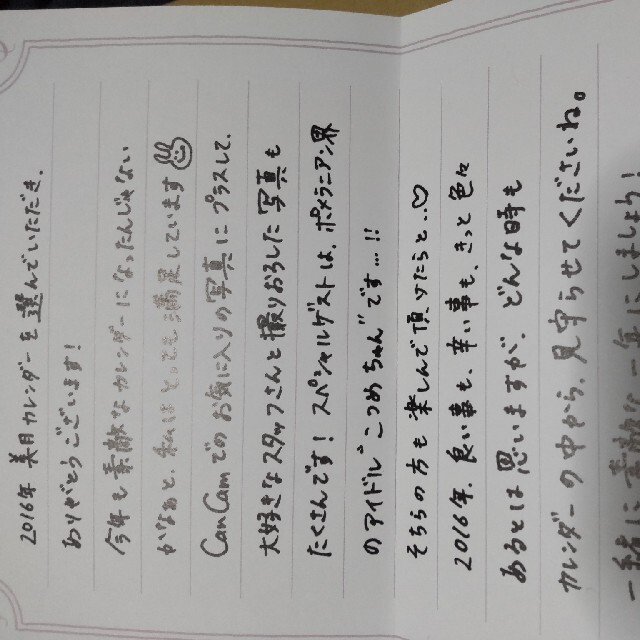 2016年 美月カレンダーを選んでいただき、
ありがとうございます!
今年も素敵なカレンダーになったんじゃない
かなぁと、私はとっても満足しています
CanCamでのお気に入りの写真にプラスして、
大好きなスタッフさんと撮りおろした写真も
たくさんです! スペシャルゲストは、ポメラニアン界
のアイドル"こつめちゃん"です…!!
そちらの方も楽しんで頂けたらと..♡
2016年、良い事も、辛い事も、きっと色々
あるとは思いますが、どんな時も
カレンダーの中から、見守らせてくださいね。
一緒に素敵な一年にしましょう!